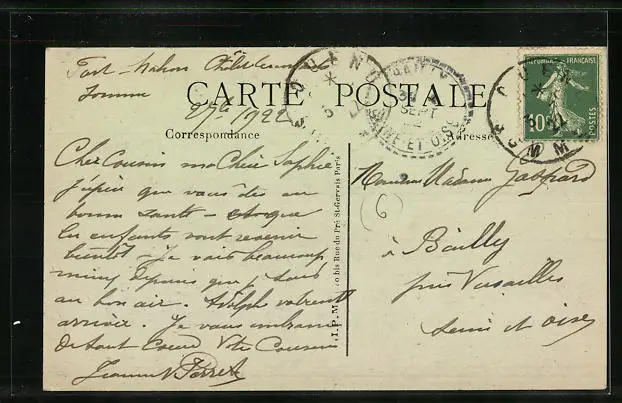 Fort-Mahon
Somme
1922
CARTE POSTALE
Correspondance
Adresse
Cher Cousin ma Chère Sophie
j'espère que vous êtes en
bonne santé - et que
les enfants vont revenir
bientôt - Je vais beaucoup
mieux depuis que je suis
au bon air. Adolph
arriver. Je vous embrasse
de tout Coeur Votre Cousine
Jeanne
Monsieur Madame
à Bailly
près Versailles
Seine et Oise
6
bis Rue du Pré St-Gervais Paris
REPUBLIQUE FRANÇAISE
10
POSTES
QUEND
SOMME
BAILLY
SEPT
SEINE ET OISE